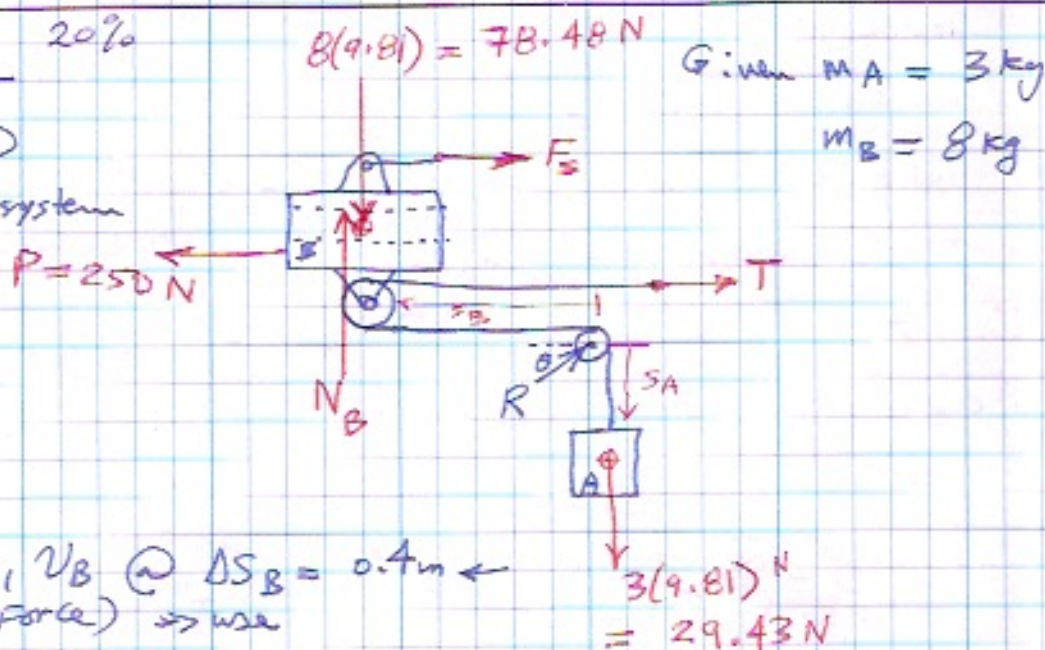 20%
8(9.81) = 78.48 N
Given mA = 3 kg
mB = 8 kg
Fs
system
B
P = 250 N
T
sB
θ
R
sA
NB
A
, vB @ ΔSB = 0.4m ←
Force) => use
3(9.81) N
= 29.43 N